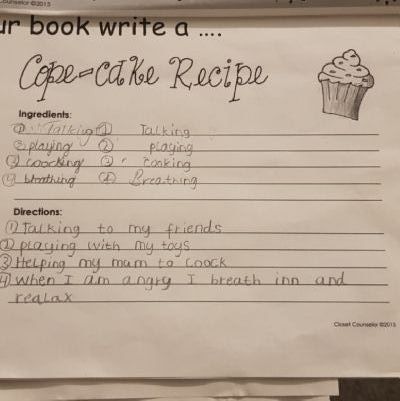 Counselor ©2015
ur book write a ....
Cope-cake Recipe
Ingredients:
① Talking ① Talking
② playing ② playing
③ coocking ③ cooking
④ breathing ④ Breathing
Directions:
① Talking to my friends
② playing with my toys
③ Helping my mum to coock
④ when I am angry I breath inn and
realax
Closet Counselor ©2015